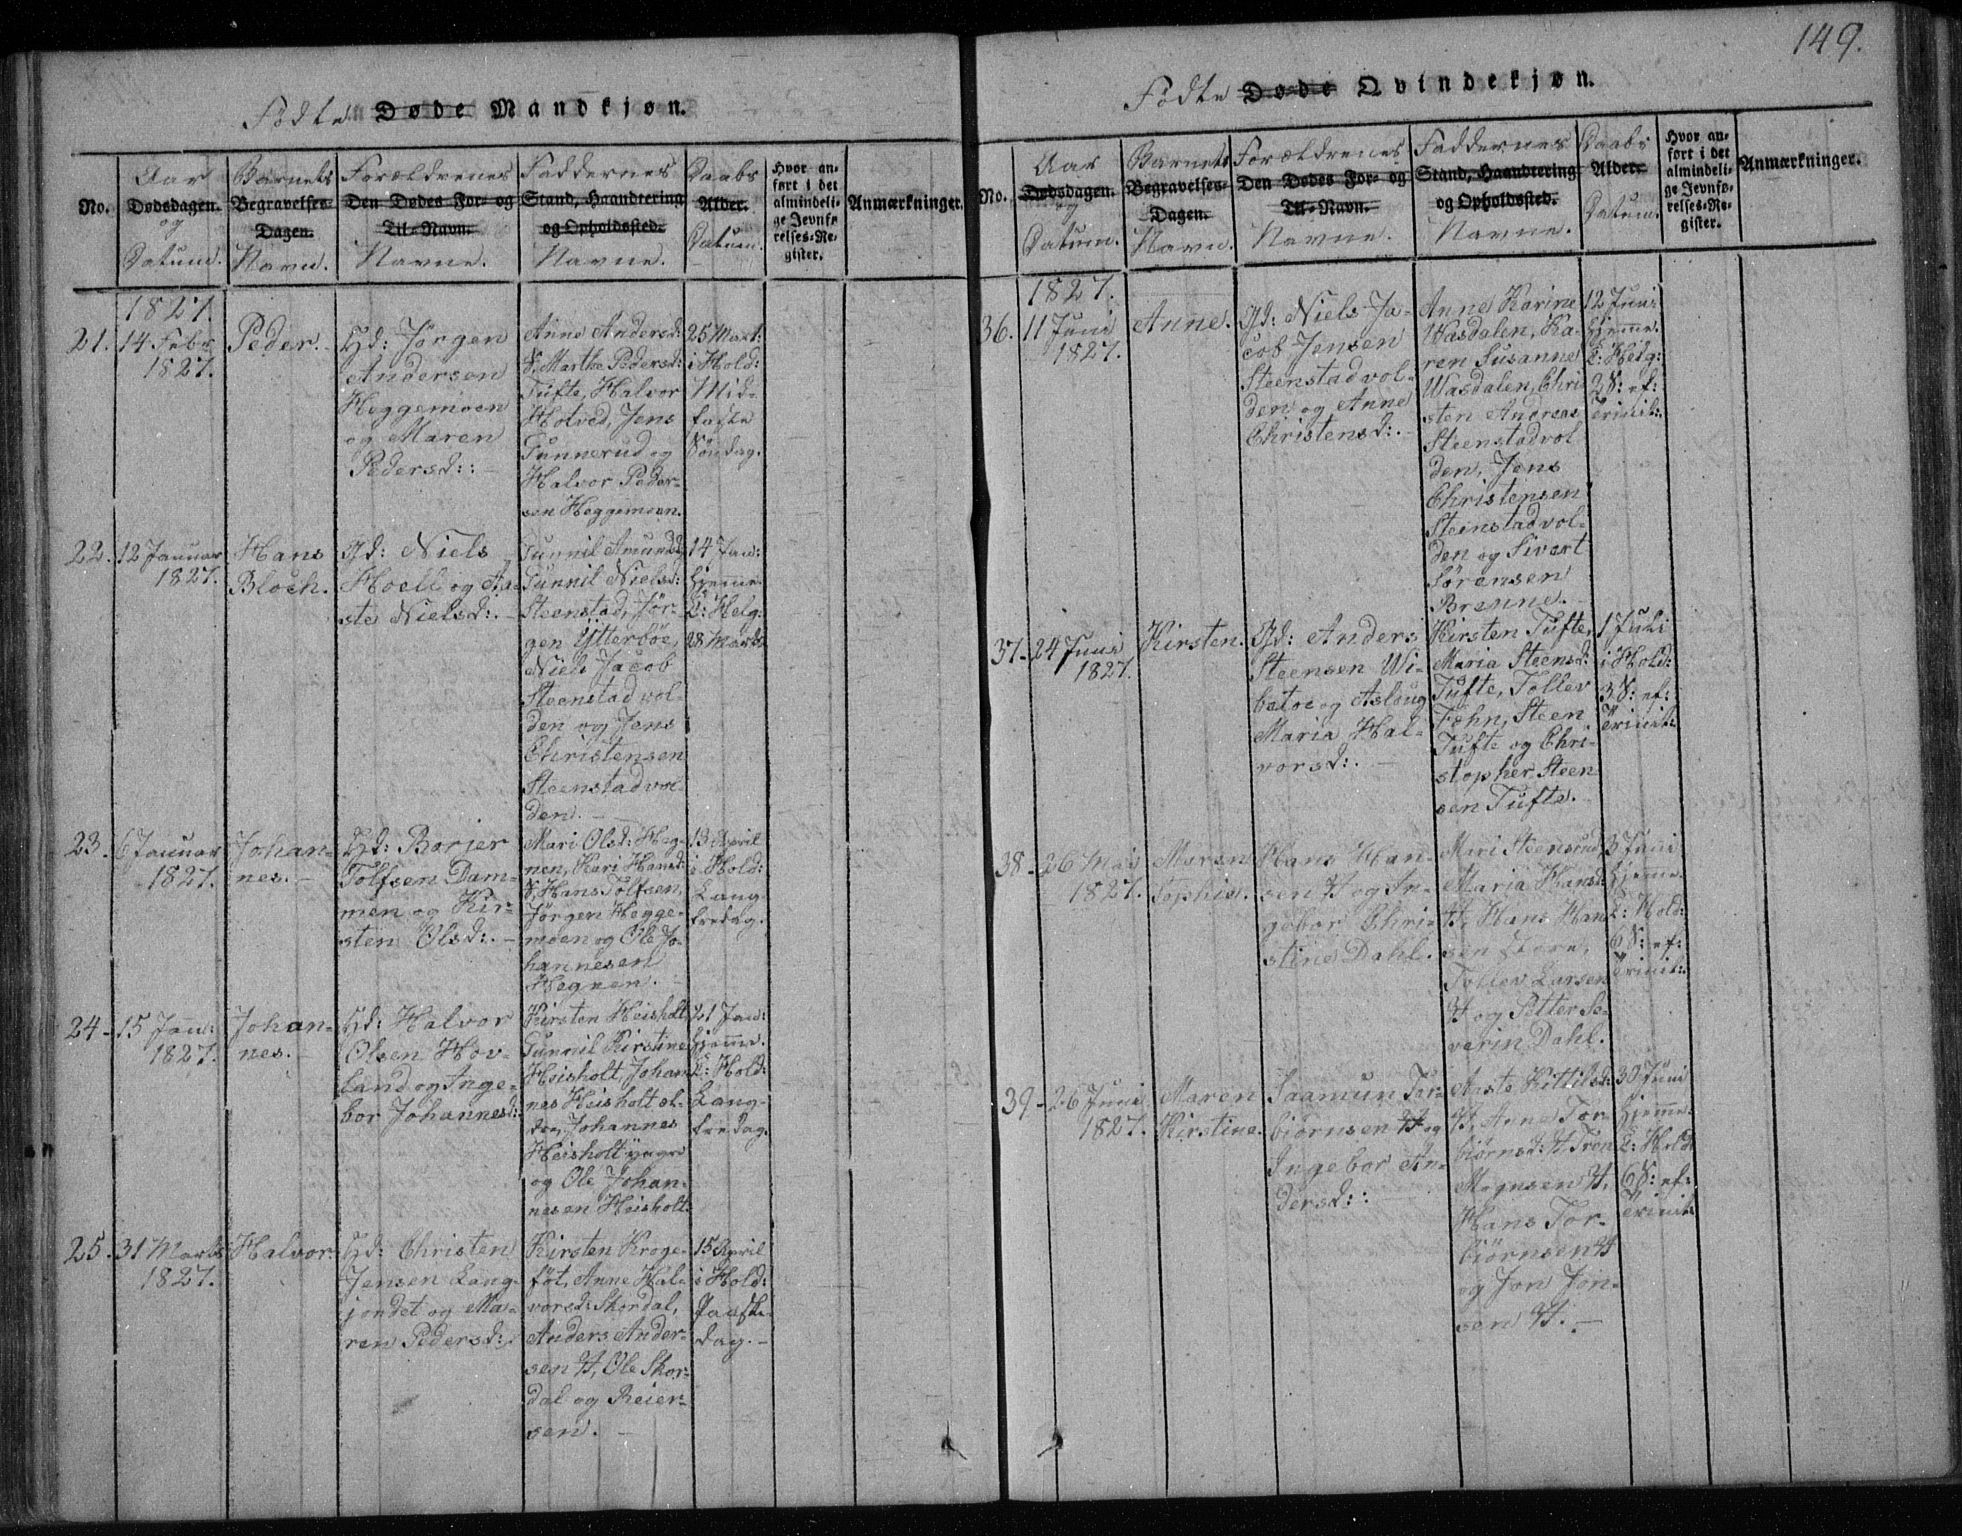 149.
Födte Døde Mandkjøn.
No.
Aar
Dødsdagen.
og
Datum.
Barnets
Begravelses-
Dagen.
Navn.
Forældrenes
Den Dødes For- og
Til-Navn.
Navne.
Faddernes
Stand, Haandtering
og Opholdssted.
Navne.
Daabs
Alder.
Datum.
Hvor an-
ført i det
almindeli-
ge Jevnfø-
relses-Re-
gister.
Anmærkninger.
1827.
21.
14 Febr
1827.
Peder.
Gd: Jörgen
Andersen
Heggemoen
og Maren
Pedersd: -
Anne Andersd:
& Marthe Pedersd:
Tufte, Halvor
Holved, Jens
Gunnerud og
Halvor Peder-
sen Heggemoen.
25 Mart:
i Hold:
Mid-
faste
Söndag.
22.
12 Januar
1827.
Hans
Bloch.
Gd: Niels
Hoell og Aa-
ste Nielsd:. -
Gunnil Amundsd
Gunnil Nielsd:
Steenstad, Jör-
gen Ytterböe,
Niels Jacob
Steenstadvol-
den og Jens
Christensen
Steenstadvol-
den. -
14 Jan:
hjemme.
I: Helg:
28 Marts
23.
6 Januar
1827.
Johan-
nes. -
Gd: Borjer
Tolfsen Dam-
men og Kir-
sten Olsd:. -
Mari Olsd: Heg-
nen, Kari Hansd:
& Hans Tolfsen,
Jörgen Hegge-
moen og Ole Jo-
hannesen
Hegnen. -
13 April
i Hold:
Lang
fredag.
24-
15 Jan:
1827.
Johan-
nes. -
Gd: Halvor
Olsen Hov-
land og Inge-
bor Johannesd:
Kirsten Heisholt
Gunnil Kirstine
Heisholt, Johan
nes Heisholt el-
dre, Johannes
Heisholt yngre
og Ole Johan-
nesen Heisholt.
21 Jan:
hjemme.
I: Hold:
Lang-
fredag.
25.
31 Marts
1827.
Halvor.
Gd: Christen
Jensen Lang-
jordet og Ma-
ren Pedersd:.
Kirsten Kroge-
föt, Anne Hal-
vorsd: Skordal,
Anders Ander-
sen H, Ole Skor-
dal og Reier-
sen. -
15 April
i Hold:
Paaske
dag. -
Födte Døde Qvindekjøn.
No.
Aar
Dødsdagen.
og
Datum.
Barnets
Begravelses-
Dagen.
Navn.
Forældrenes
Den Dødes For- og
Til-Navn.
Navne.
Faddernes
Stand, Haandtering
og Opholdssted.
Navne.
Daabs
Alder.
Datum.
Hvor an-
ført i det
almindeli-
ge Jevnfø-
relses-Re-
gister.
Anmærkninger.
1827.
36.
11 Juni
1827.
Anne.
Gd: Niels Ja-
cob Jensen
Steenstadvol-
den og Anne
Christensd:. -
Anne Karine
Wasdalen, Ka-
ren Susanne
Wasdalen, Chri
sten Andreas
Steenstadvol
den, Jens
Christensen
Steenstadvol-
den og Sivert
Sörensen
Brenne. -
12 Juni
hjemme.
I: Helg:
2 S: ef:
Trinit:.
37-
24 Juni
1827.
Kirsten.
Gd: Anders
Steensen Wi-
betoe og Aslaug
Maria Hal-
vorsd:. -
Kirsten Tufte,
Maria Steensd:
Tufte, Tollev
Fæhn, Steen
Tufte og Chri-
stopher Steen
sen Tufte.
1 Juli
i Hold:
3 S: ef:
Trinit:
38-
26 Mai
1827.
Maren
Sophie.
Hans Han
sen H og In-
gebor Chri-
stine Dahl.
Mari Steensrud,
Maria Hansd:
H, Hans Han
sen Store,
Tollev Larsen
H og Petter Se-
verin Dahl.
3 Juni
hjemme.
I: Hold:
6 S: ef:
Trinit:.
39-
26 Juni
1827.
Maren
Kirstine.
Saamun Tor-
biörnsen H og
Ingebor An-
dersd: -
Aaste Kittilsd:
H, Anne Tor-
biörnsd: H, Tron
Mognsen H,
Hans Tor-
biörnsen H
og Jon Jön-
sen H. -
30 Juni
hjemme.
I: Hold:
6 S: ef:
Trinit: